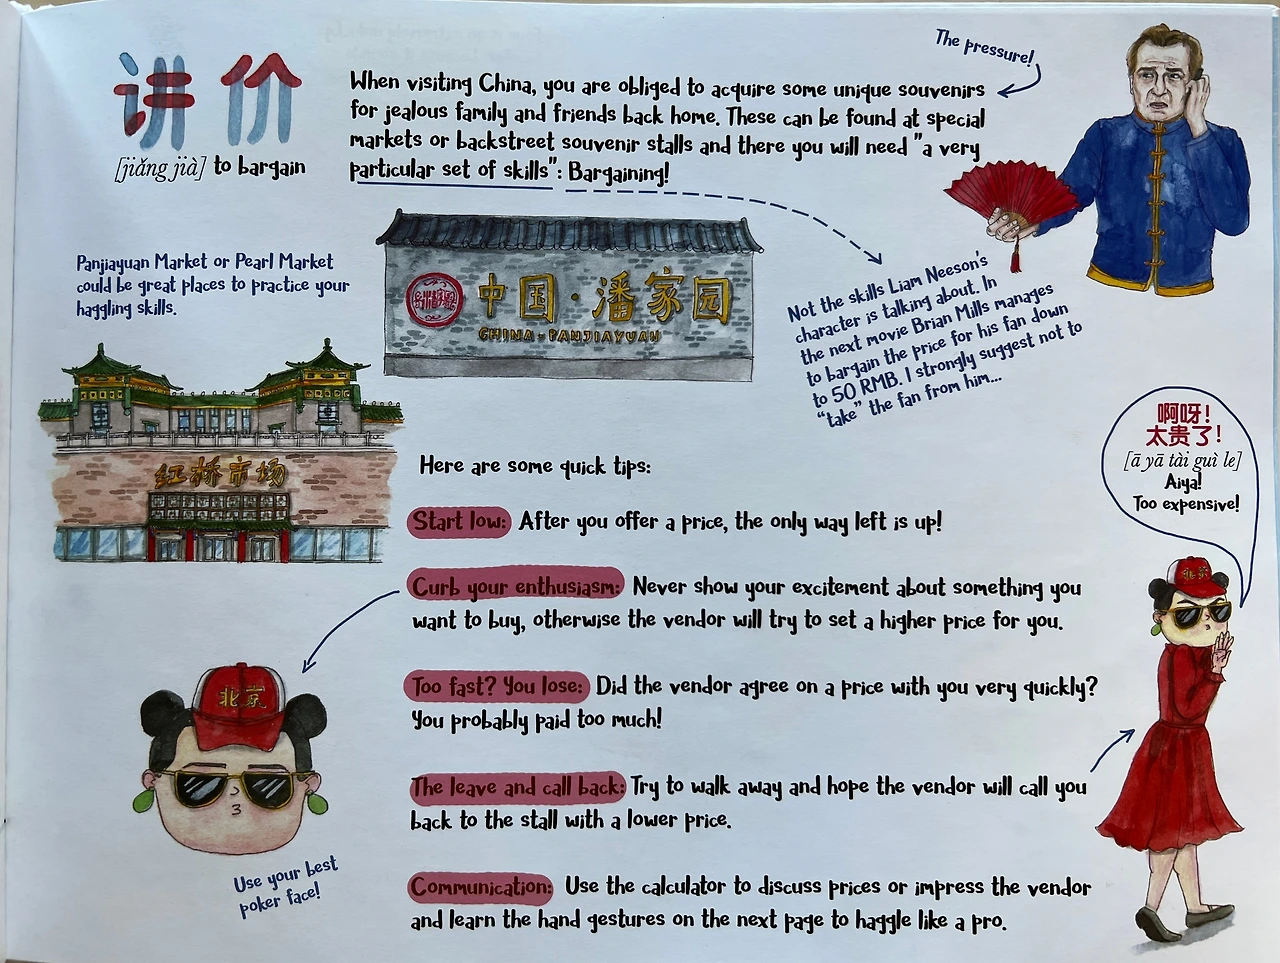 讲价
[jiǎng jià] to bargain
When visiting China, you are obliged to acquire some unique souvenirs
for jealous family and friends back home. These can be found at special
markets or backstreet souvenir stalls and there you will need "a very
particular set of skills": Bargaining!
The pressure!
Panjiayuan Market or Pearl Market
could be great places to practice your
haggling skills.
中国·潘家园
CHINA·PANJIAYUAN
Not the skills Liam Neeson's
character is talking about. In
the next movie Brian Mills manages
to bargain the price for his fan down
to 50 RMB. I strongly suggest not to
"take" the fan from him...
红桥市场
Here are some quick tips:
Start low: After you offer a price, the only way left is up!
Curb your enthusiasm: Never show your excitement about something you
want to buy, otherwise the vendor will try to set a higher price for you.
Too fast? You lose: Did the vendor agree on a price with you very quickly?
You probably paid too much!
The leave and call back: Try to walk away and hope the vendor will call you
back to the stall with a lower price.
Communication: Use the calculator to discuss prices or impress the vendor
and learn the hand gestures on the next page to haggle like a pro.
北京
Use your best
poker face!
啊呀!
太贵了!
[ā yā tài guì le]
Aiya!
Too expensive!
北京